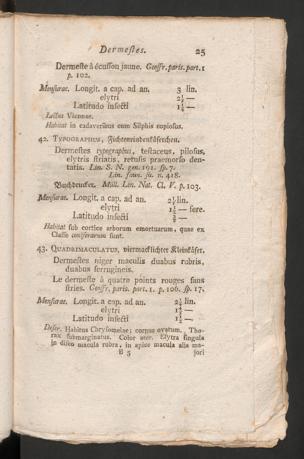 Dermestes. 25
Dermeste à écusson jaune. Geoffr. paris. part. 1
p. 102.
Mensurae. Longit. a cap. ad an. 3 lin.
elytri 2½ —
Latitudo insecti 1½ —
Lectus Viennae.
Habitat in cadaveribus cum Silphis copiosus.
42. TYPOGRAPHUS, Fichtenrindenkäferchen.
Dermestes typographus, testaceus, pilosus,
elytris striatis, retusis praemorso den-
tatis. Lin. S. N. gen. 191. sp. 7.
Lin. faun. su. n. 418.
Buchdrucker. Müll. Lin. Nat. Cl. V. p. 103.
Mensurae. Longit. a cap. ad an. lin.
elytri — fere.
Latitudo insecti —
Habitat sub cortice arborum emortuarum, quas ex
Classe coniferarum sunt.
43. QUADRIMACULATUS, viermackichter Kleinkäfer.
Dermestes niger maculis duabus rubris,
duabus ferrugineis.
Le dermeste à quatre points rouges sans
stries. Geoffr. paris. part. 1. p. 106. sp. 17.
Mensurae. Longit. a cap. ad an. 2½ lin.
elytri —
Latitudo insecti —
Descr. Habitus Chrysomelae; corpus ovatum. Tho-
rax submarginatus. Color ater. Elytra singula
in disco macula rubra, in apice macula alia ma-
B 5 jori